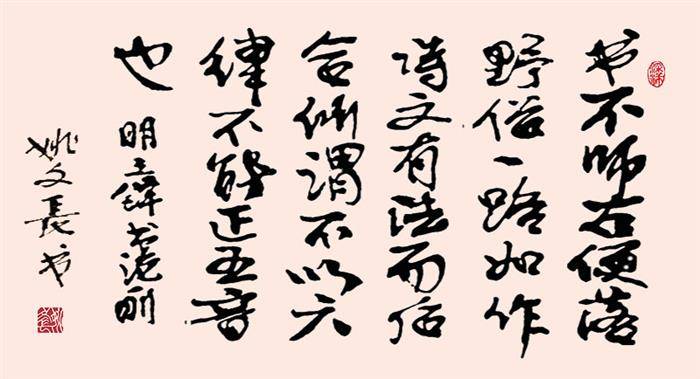 书不师古便落
野俗一路如作
诗文有法而后
合所谓不以六
律不能正五音
也
明王铎书
姚文長书